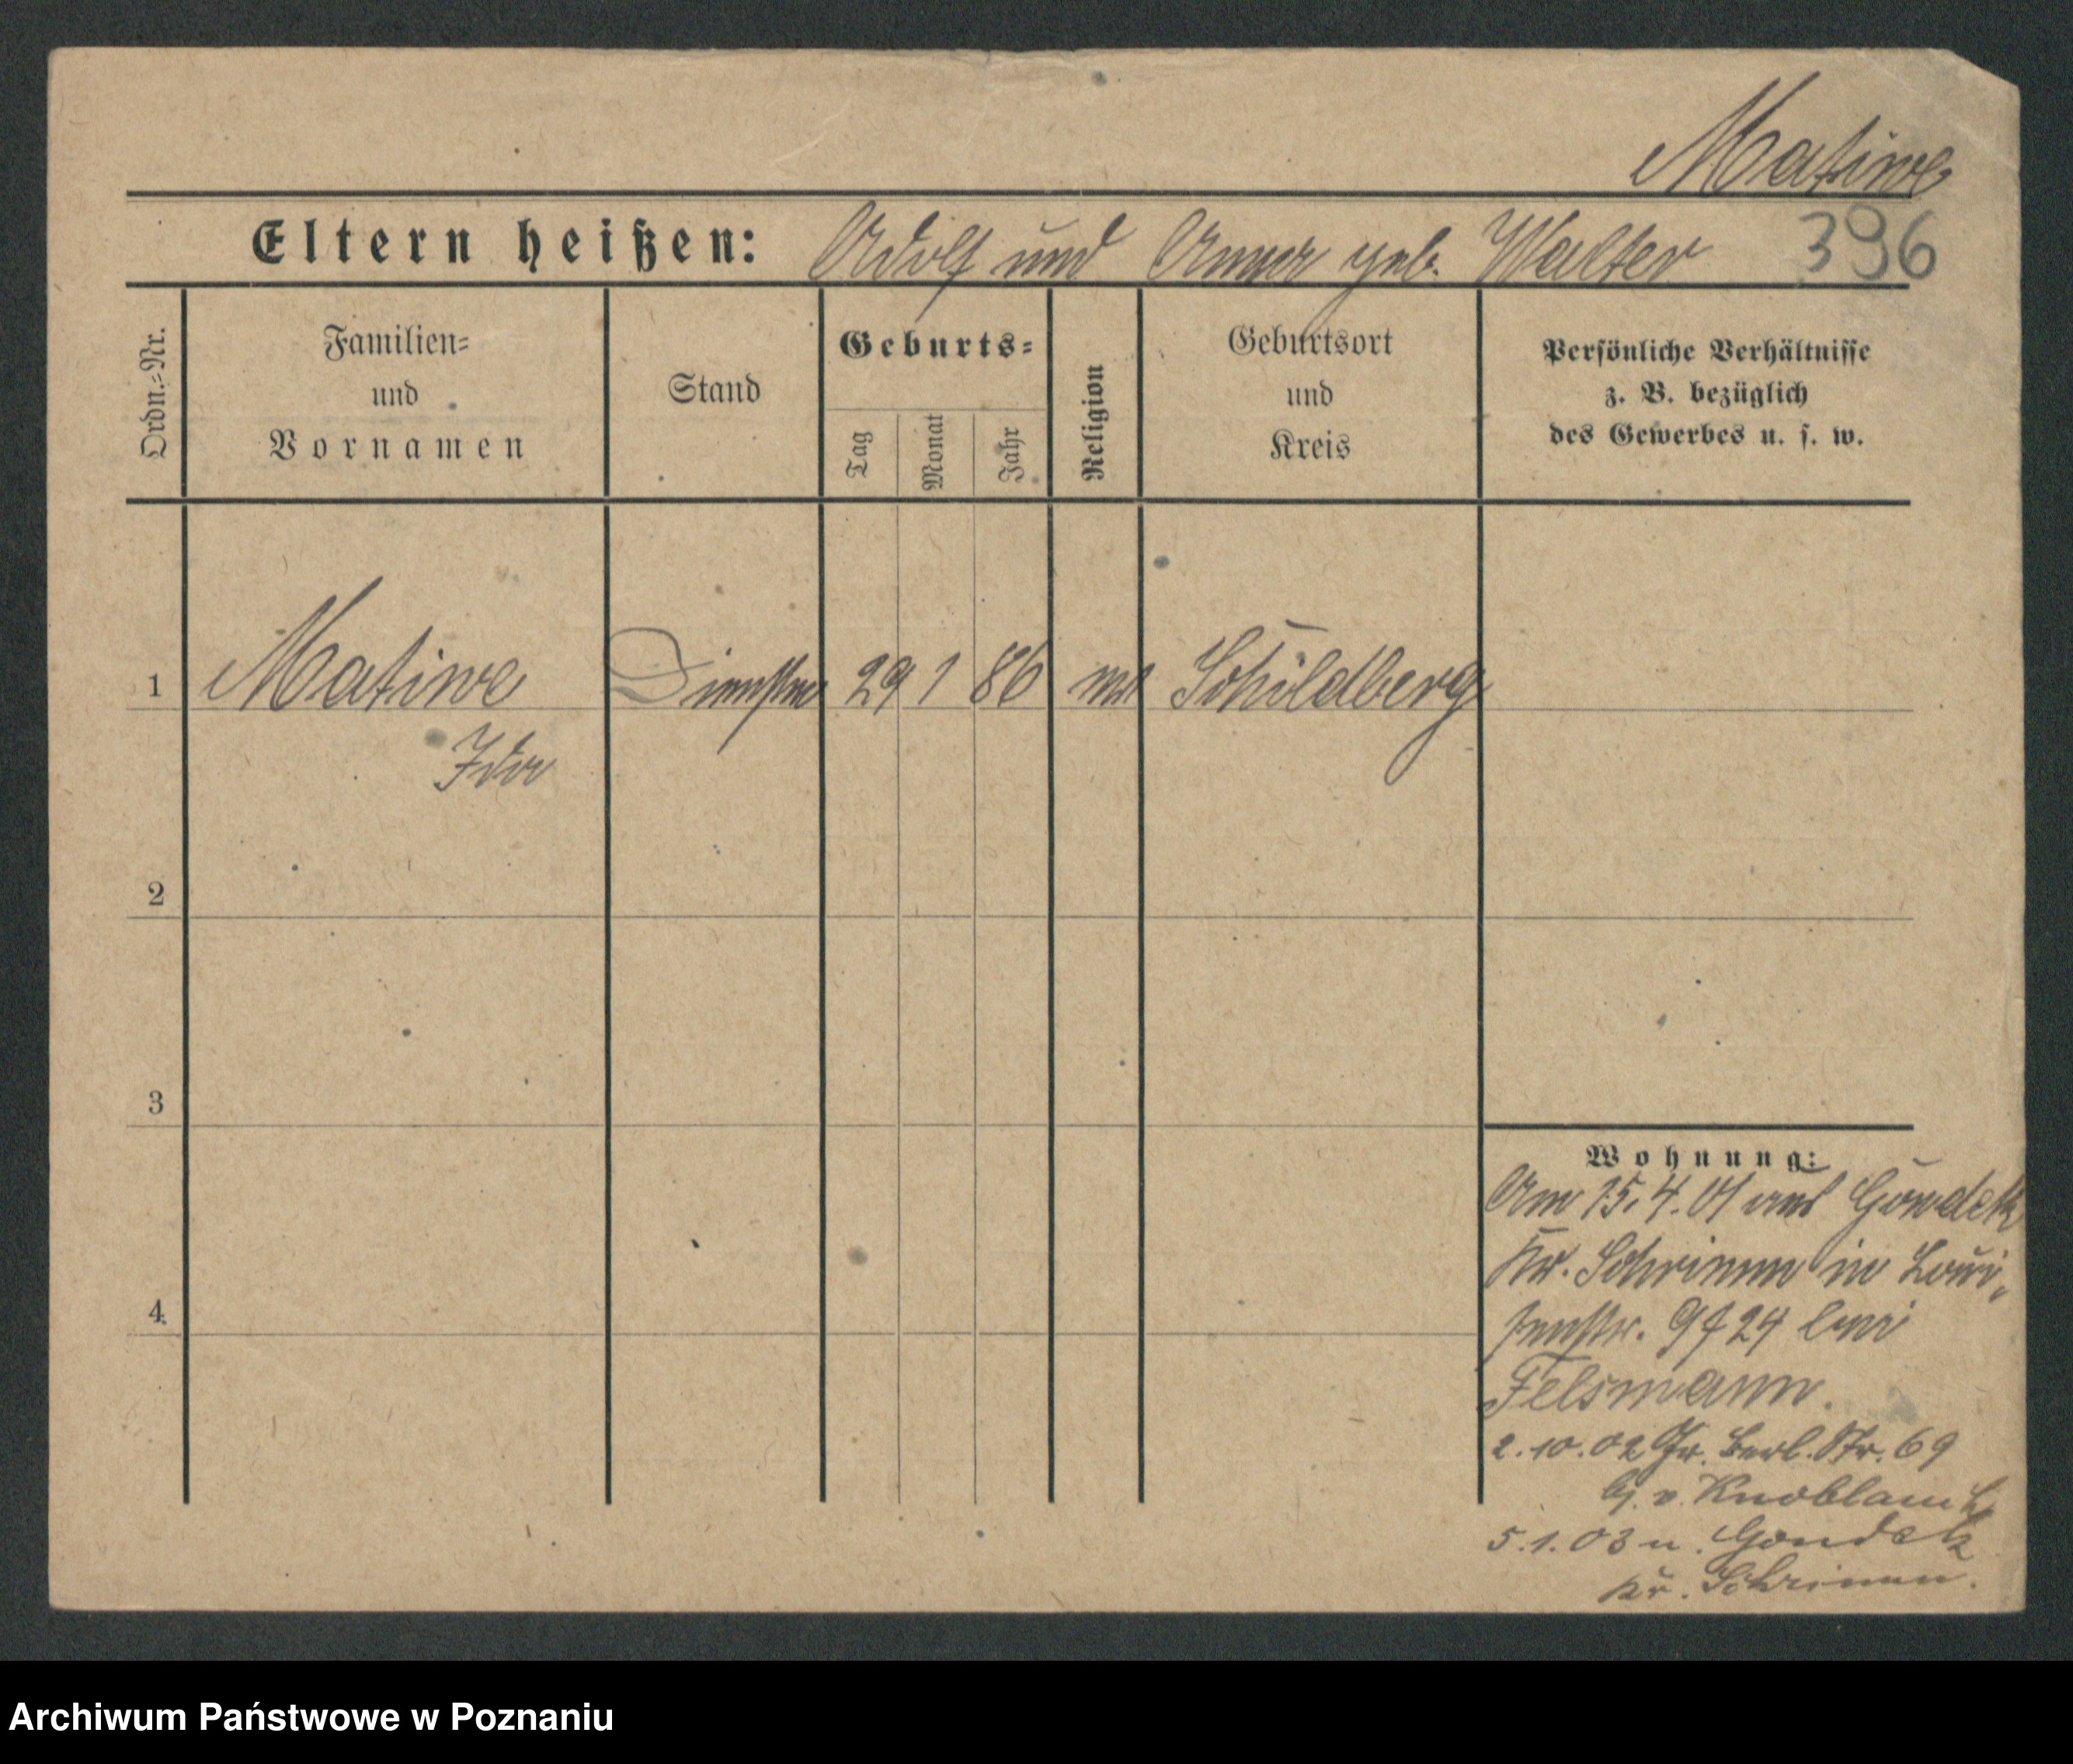 Matiwe
Eltern heißen: Adolf und Anna geb. Walter 396
Ordn.-Nr.
Familien-
und
Vornamen
Stand
Geburts-
Tag
Monat
Jahr
Religion
Geburtsort
und
Kreis
Persönliche Verhältnisse
z. B. bezüglich
des Gewerbes u. s. w.
1 Matiwe 29 1 86 Schildberg
Ida
2
3
4
Wohnung:
Am 15.4.01 aus Gondek
Kr. Schrimm in Loui-
senstr. bei
Felsmann.
2.10.02 Gr. Berl. Str. 69
b. v. Knoblauch
5.1.03 n. Gondek
Kr. Schrimm.
Archiwum Państwowe w Poznaniu